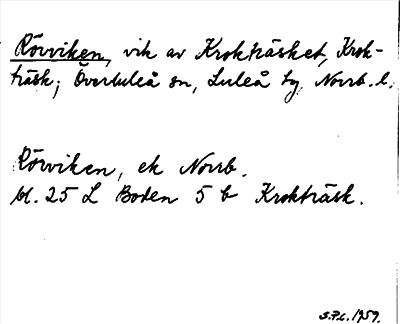 Rörviken, vik av Krokträsket, Krok-
träsk, Överluleå sn, Luleå tg, Norrb. l.
Rörviken, ek Norrb.
bl. 25 L Boden 5 b Krokträsk.
S.P.L. 1959.